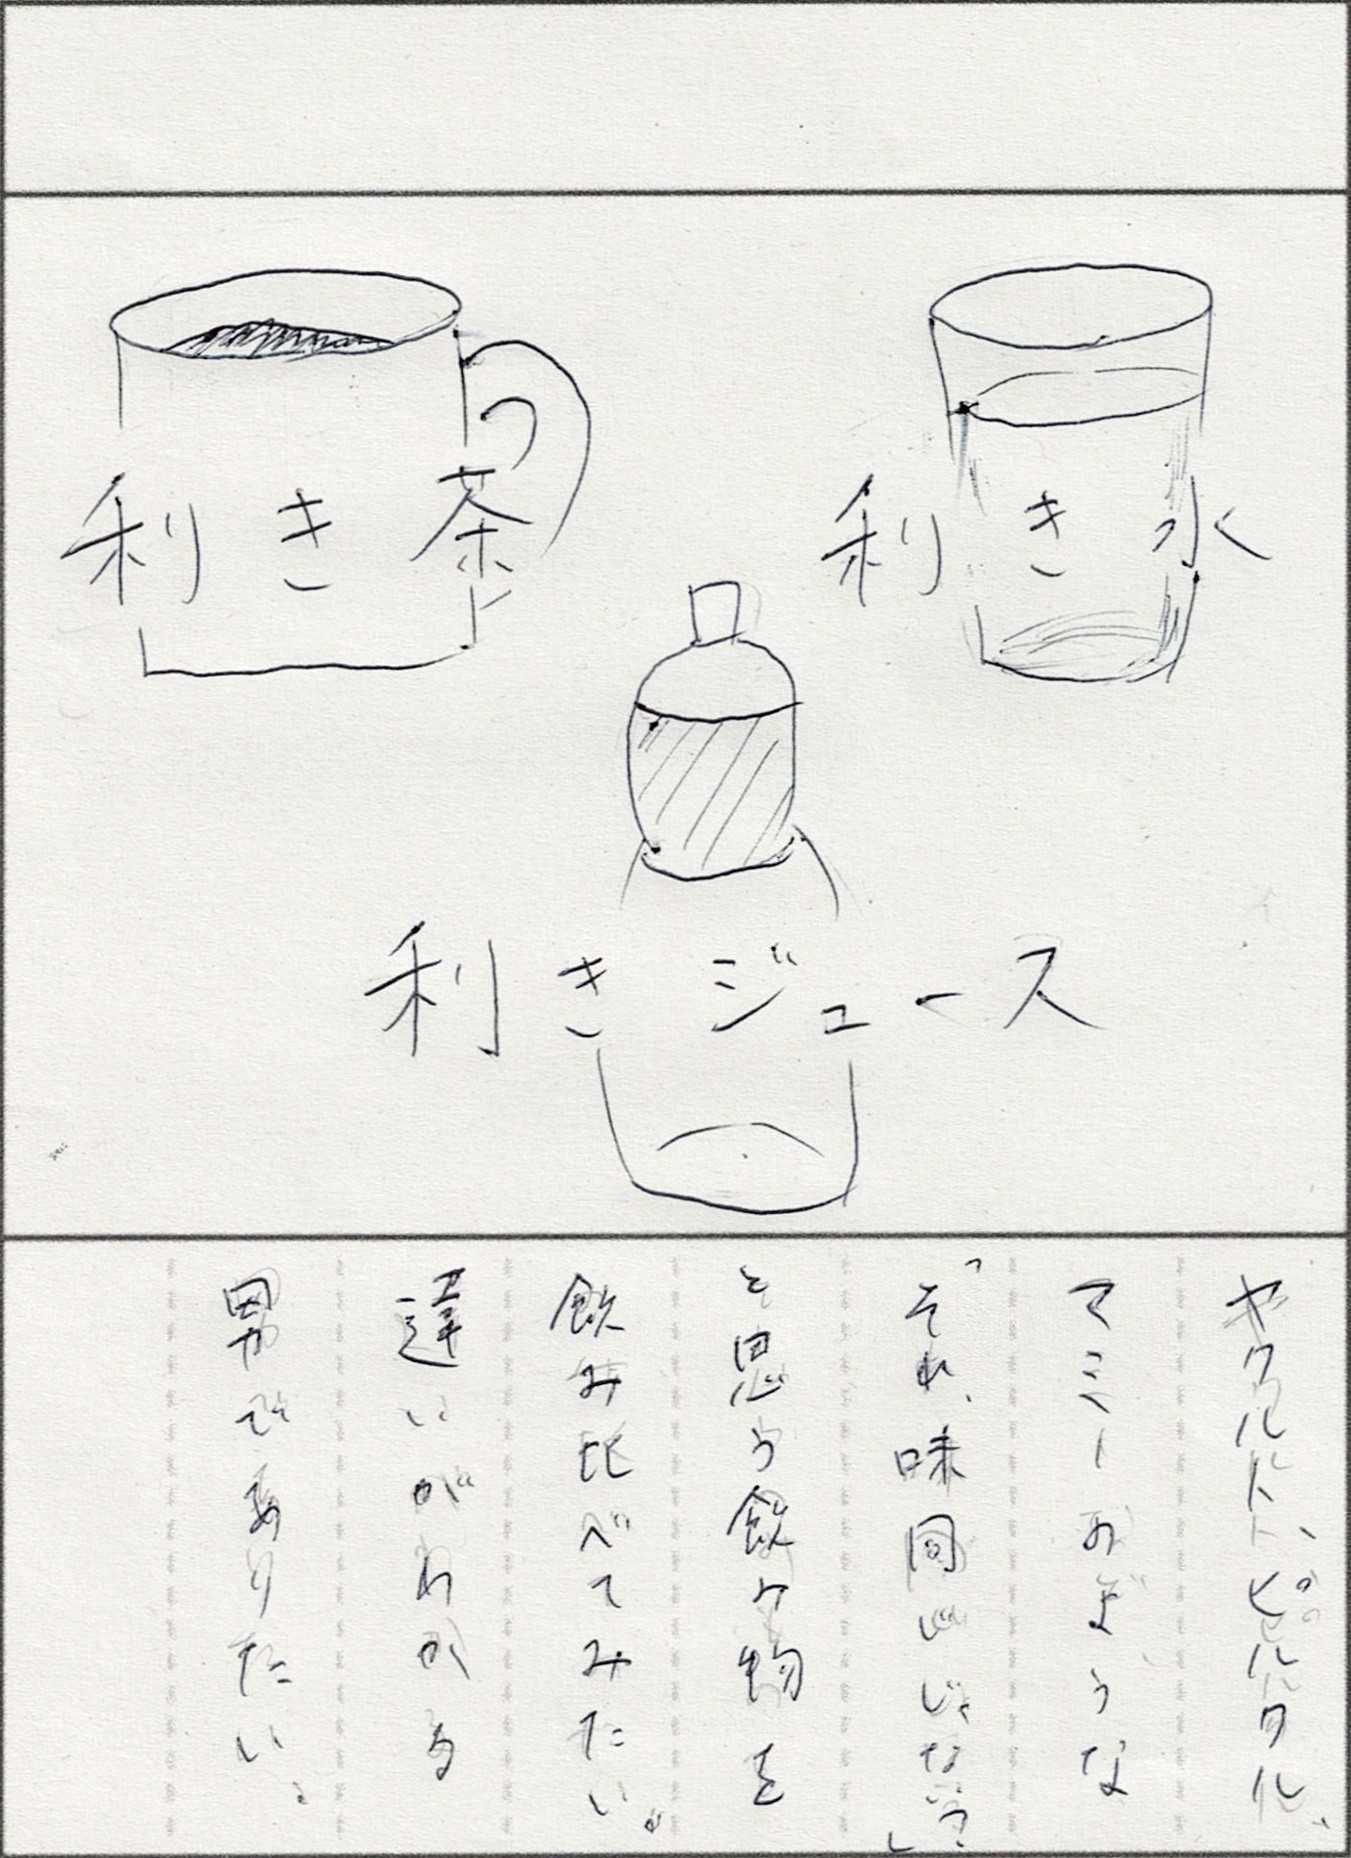 利き茶
利き水
利きジュース
ヤクルト、ピルクル、
マミーのような
「それ、味同じじゃない?」
と思う飲み物を
飲み比べてみたい。
違いがわかる
男でありたい。